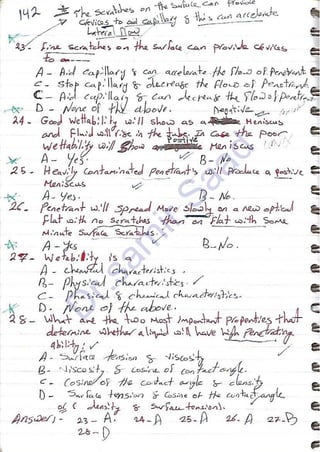 142 * The Scratches on the Surface can Provide
Cevices to aid capillary & this can accelerate
Lateral Flow
23- Fine scratches on the Surface can provide cevices
to
A - Aid capillary & can accelerate the flow of Penetrant
B - stop capillary & decrease the flow of Penetrant
C - Aid capillary & can decrease the flow of Penetrant
D - None of the above.
24- Good Wettability will show as a negative Meniscus
and Fluid will rise in the tube. In Case the poor
Wettability will show Positive Meniscus
A - Yes. B - No
25- Heavily Contaminated penetrants will Produce a postive
Meniscus
A - Yes. B - No.
26- Penetrant will Spread Move Slowly on a new optical
Flat with no Scratches than on Flat with Some
Minute Surface Scratches.
A - Yes B - No.
27- Wetability is a
A - chemical characteristics.
B - Physical characteristics.
C - Phsical & chemical characteristics.
D - None of the above.
28- What are the two most Important Properties that
determine whether a liquid will have high Penetrating
ability:
A - Surface tension & Viscosity
B - Viscosity & cosine of contact angle.
C - Cosine of the contact angle & density
D - Surface tension & Cosine of the contact angle
of ( density & Surface tension).
Answer:- 23-A. 24-A 25-A 26-A 27-B
28-D